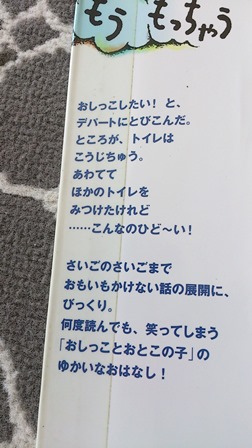 もう もっちゃう
おしっこしたい! と、
デパートにとびこんだ。
ところが、トイレは
こうじちゅう。
あわてて
ほかのトイレを
みつけたけれど
……こんなのひど〜い!
さいごのさいごまで
おもいもかけない話の展開に、
びっくり。
何度読んでも、笑ってしまう
「おしっことおとこの子」の
ゆかいなおはなし!